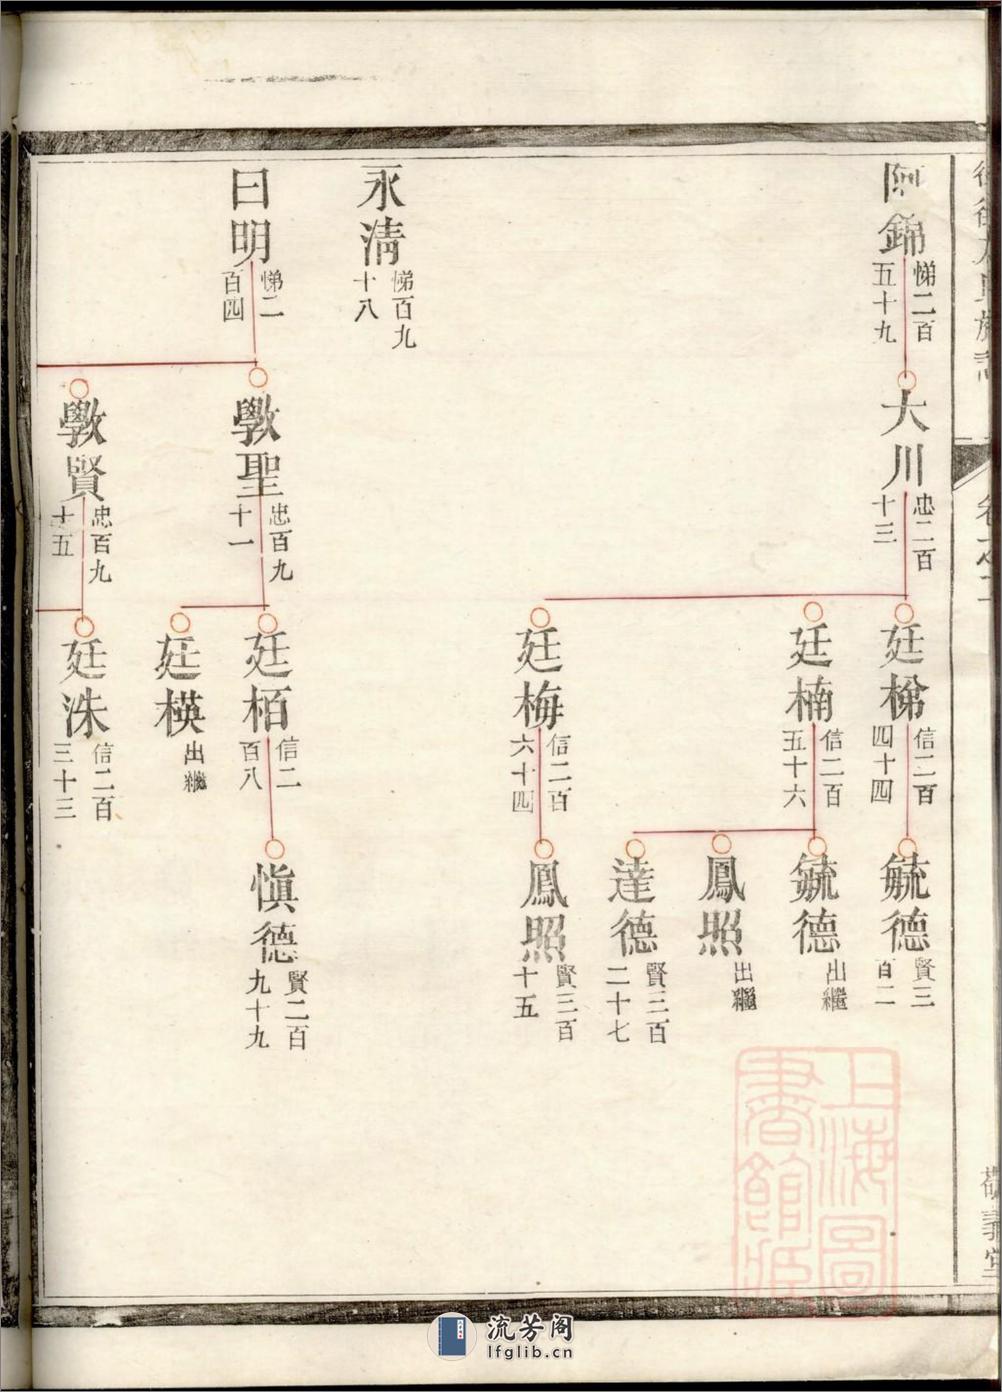 阿錦
悌二百
五十九
永清
悌百九
十八
曰明
悌二
百四
大川
忠二百
十三
斆聖
忠百九
十一
斆賢
忠百九
十五
廷梯
信二百
四十四
廷楠
信二百
五十六
廷梅
信二百
六十四
廷栢
信二
百八
廷楧
出繼
廷洙
信二百
三十三
毓德
賢三
百二
毓德
出繼
鳳照
出繼
達德
賢三百
二十七
鳳照
賢三百
十五
慎德
賢二百
九十九
上海圖
書館藏
流芳阁
lfglib.cn